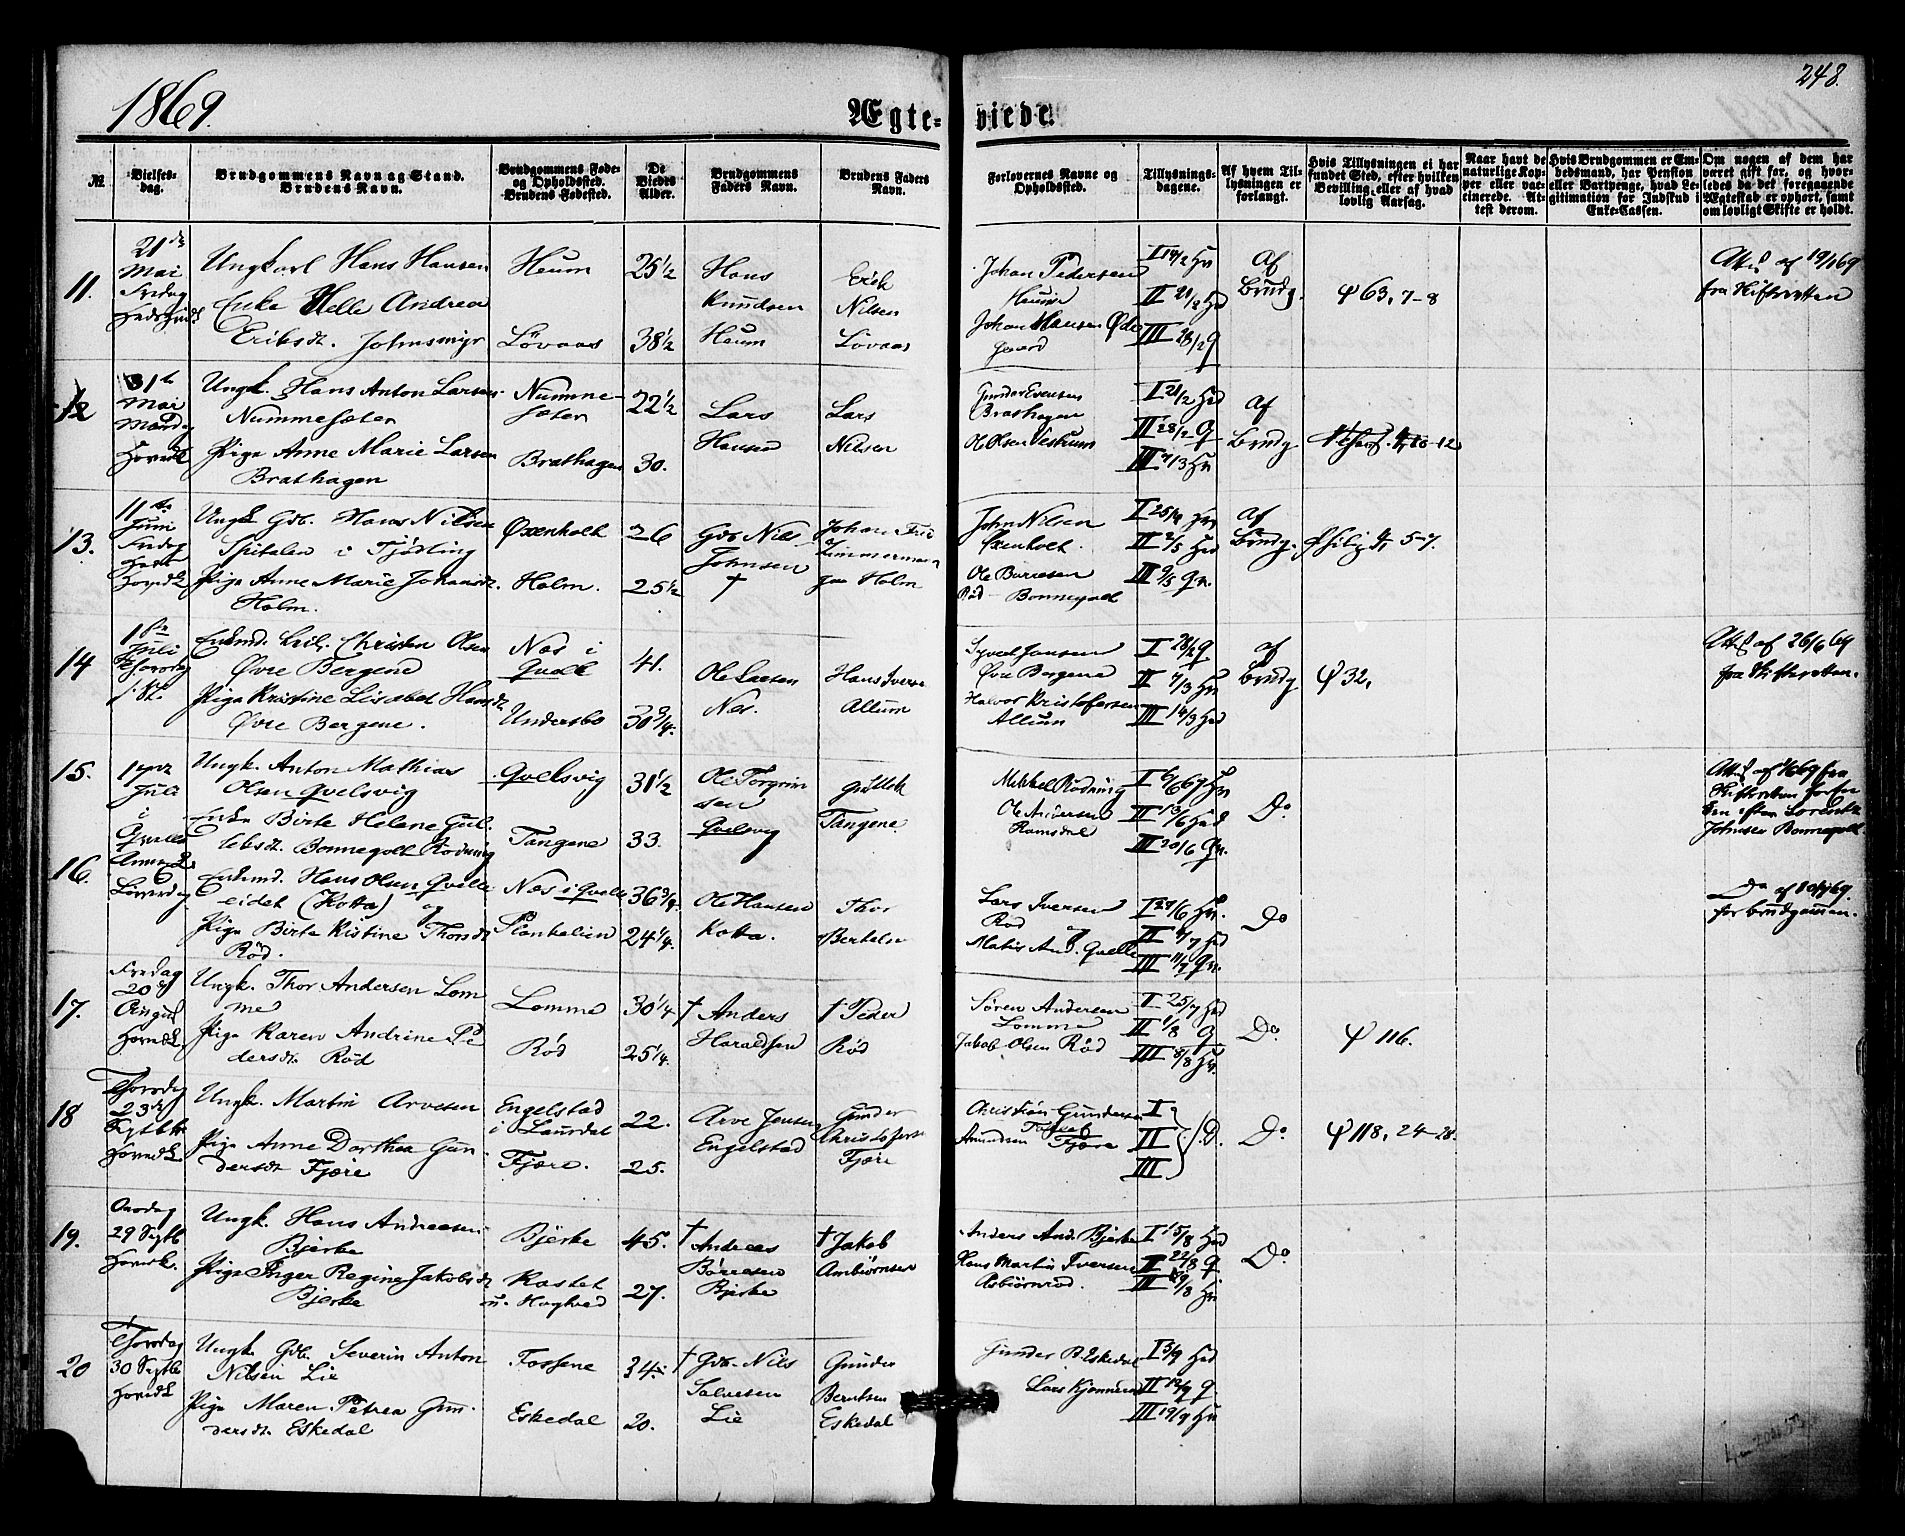 1869.
Ægte-
viede.
248.
№
Vielses-
dag.
Brudgommens Navn og Stand.
Brudens Navn.
Brudgommens Føde-
og Opholdssted.
Brudens Fødested.
De
Viedes
Alder.
Brudgommens
Faders Navn.
Brudens Faders
Navn.
Forlovernes Navne og
Opholdssted.
Tillysnings-
dagene.
Af hvem Til-
lysningen er
forlangt.
Hvis Tillysningen ei har
fundet Sted, efter hvilken
Bevilling eller af hvad
lovlig Aarsag.
Naar havt de
naturlige Kop-
per eller vac-
cinerede. At-
test derom.
Hvis Brudgommen er Em-
bedsmand, har Pension
eller Vartpenge, hvad Le-
gitimation for Indskud i
Enke-Cassen.
Om nogen af dem har
været gift før, og hvor-
ledes da det foregaaende
Ægtestad er ophørt, samt
om lovligt Skifte er holdt.
11.
21de
Mai
Fredag
Ungkarl Hans Hansen
Enke Helle Andrea
Eriksdt. Johnsmyr
Heum
Lövaas
25 1/2
38 1/2
Hans
Knudsen
Heum
Erik
Nilsen
Lövaas
Johan Pedersen
Heum
Johan Hansen Øde
gaard
I 14/2 Hv
II 21/2 Hed
III 28/2 Q
Af
Brudg.
Ψ 63, 7-8
Att. af 19/1 69
fra Skifteretten
12
31te
Mai
Mandag
Hovedk
Ungk. Hans Anton Larsen
Nummesæter
Pige Anne Marie Larsen
Brathagen
Numme-
sæter
Brathagen
22 1/2
30.
Lars
Hansen
Lars
Nilsen
Gunder Evensen
Brathagen
Ole Olsen Vestrum
I 21/2 Hed
II 28/2 Q
III 7/3 Hv
Af
Brudg.
13.
11te
Juni
Fredag
Hovedk
Ungk. Gdb. Hans Nilsen
Spitalen i Tjödling
Pige Anne Marie Johansdt.
Holm.
Øxenholt
Holm.
26
25 1/2
Gdb Nils
Johnsen
†
Johan Fred
Timmermann
paa Holm
John Nilsen
Øxenholt.
Ole Borresen
Röd Bonnegolt
I 25/4 Hv
II 2/5 Hed
III 9/5 Qv.
Af
Brudg.
Philip. 4, 5-7.
14
1ste
Juli
Thorsdag
Enkemd. Christen Olsen
Øvre Bergene
Pige Kristine Lisabet Hansdt
Øvre Bergene.
Næs i
Qvelle
Undersbo
41.
30 3/4.
Ole Larsen
Næs.
Hans Iversen
Allum
Syvert Jansen
Øvre Bergene
Halvor Kristofersen
Allum
I 28/2 Q
II 7/3 Hv
III 14/3 Hed
af
Brudg
Ψ 32,
Att. af 26/6 69
fra Skifteretten.
15.
17de
Juli
i
Qvelle
Ungk. Anton Mathias
Olsen Qvelsvig
Enke Birte Helene Gul-
leksdt. Bonnegolt Rödning
Qvelsvig
Tangene
31 1/2
33.
Ole Torgrim
sen
Qvelsvig
Gullek
Tangene
Mikkel Rödning
Ole Andersen
Ramsdal
I 6/6 69 Hv
II 13/6 Hed
III 20/6 Qv.
Do.
Att. af 69 fra
Skifteretten
Johnsen Bonnegolt
16.
Löverdag
Enkemd. Hans Olsen Qvelle
eidet (Kotta) og
Pige Birte Kistine Thorsdt
Röd.
Næs i Qvelle
Plantelien
36 3/4.
24 1/4.
Ole Hansen
Kotta.
Thor
Bertelsen
Lars Iversen
Röd
Matis And. Qvelle
I 27/6 Hv.
II 4/7 Hed
III 11/7 Qv.
Do
Do af 69
for brudgommen.
17.
Fredag
20de
August
Hovedk.
Ungk. Thor Andersen Lom
me
Pige Karen Andrine Pe
dersdt Röd
Lomme
Röd
30 1/4
25 1/4.
† Anders
Haraldsen
† Peder
Röd
Sören Andersen
Lomme
Jakob Olsen Röd
I 25/7 Hed
II 1/8 Q
III 8/8 Hv.
Do.
Ψ 116.
18
Thorsdag
23de
Septbr
Hovedk.
Ungk. Martin Arvesen
Pige Anne Dorthea Gun
dersdt Fjære
Engelstad
i Laurdal
Fjære.
22.
25.
Arve Jensen
Engelstad
Gunder
Christofersen
Fjære
Christian Gundersen
Jakob
Amundsen Fjære
I
II
III
Do.
Ψ 118, 24-28.
19.
Onsdag
29 Septb
Hovedk.
Ungk. Hans Andreasen
Bjerke
Pige Inger Regine Jakobsdt
Bjerke
Bjerke
Kastet
u. Hogtvedt
45.
27.
† Andreas
Börresen
Bjerke
† Jakob
Ambiörnsen
Anders And. Bjerke
Hans Martin Iversen
Asbiörnröd.
I 15/8 Hed
II 22/8 Q
III 29/8 Hv
Do.
20
Thorsdag
30 Septb
Hovedk
Ungk. Gdb. Severin Anton
Nilsen Lie
Pige Maren Petrea Gun-
dersdt. Eskedal
Fossene
Eskedal
34.
20.
† Gdb. Nils
Salvesen
Lie
Gunder
Berntsen
Eskedal
Gunder B. Eskedal
Lars Kjønnerud
I 5/9 Hed
II 12/9 Q
III 19/9 Hv